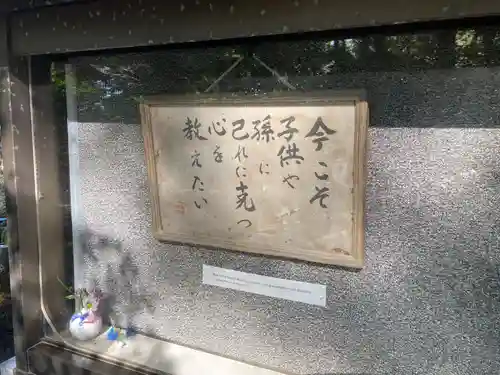 今こそ
子供や
孫に
己れに克つ
心を
教えたい